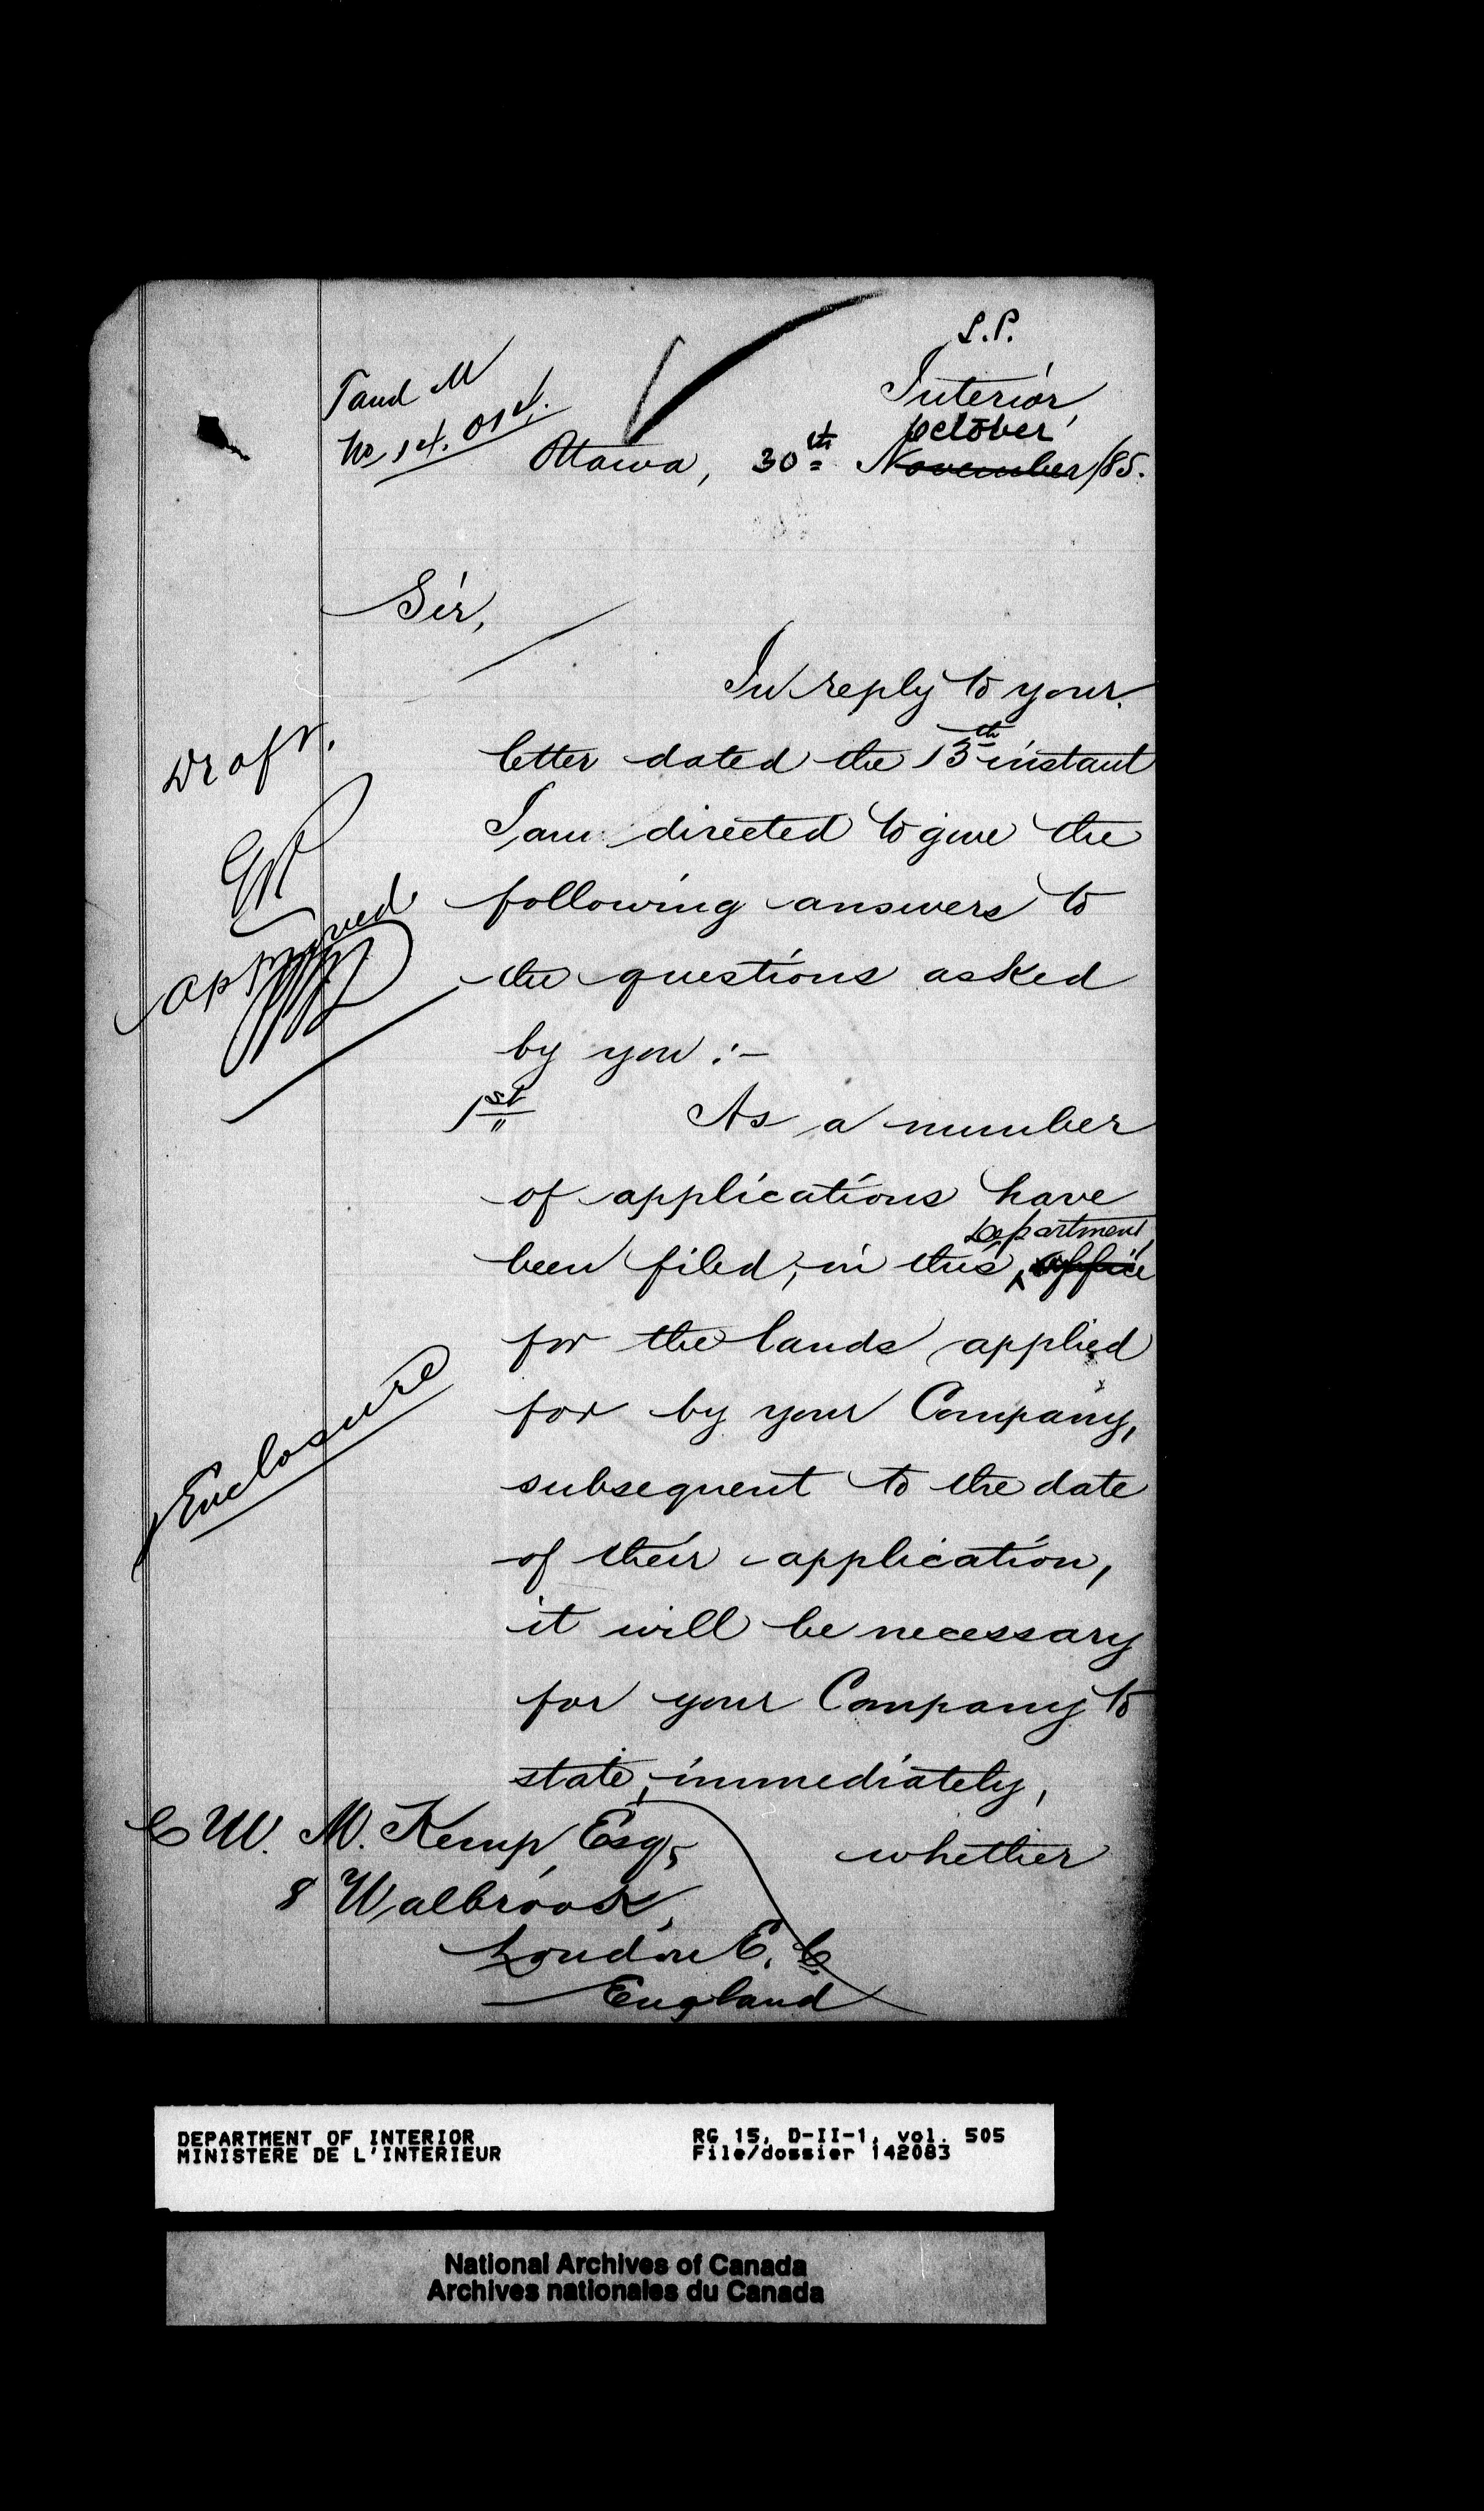 L.P.
Interior,
T and M
October
Ottawa, 30th November/85.
Sir,
In reply to your
Draft.
letter dated the 13th instant
I am directed to give the
following answers to
approved
the questions asked
by you :-
1st As a number
of applications have
Department
been filed, in this, office
for the lands applied
Enclosure
for by your Company,
subsequent to the date
of their application,
it will be necessary
for your Company to
state, immediately,
whether
C W. M. Kemp Esq,
8 Walbrook,
London E. C.
England
DEPARTMENT OF INTERIOR RG 15, D-II-1, vol. 505
MINISTERE DE L'INTERIEUR File/dossier 142083
National Archives of Canada
Archives nationales du Canada